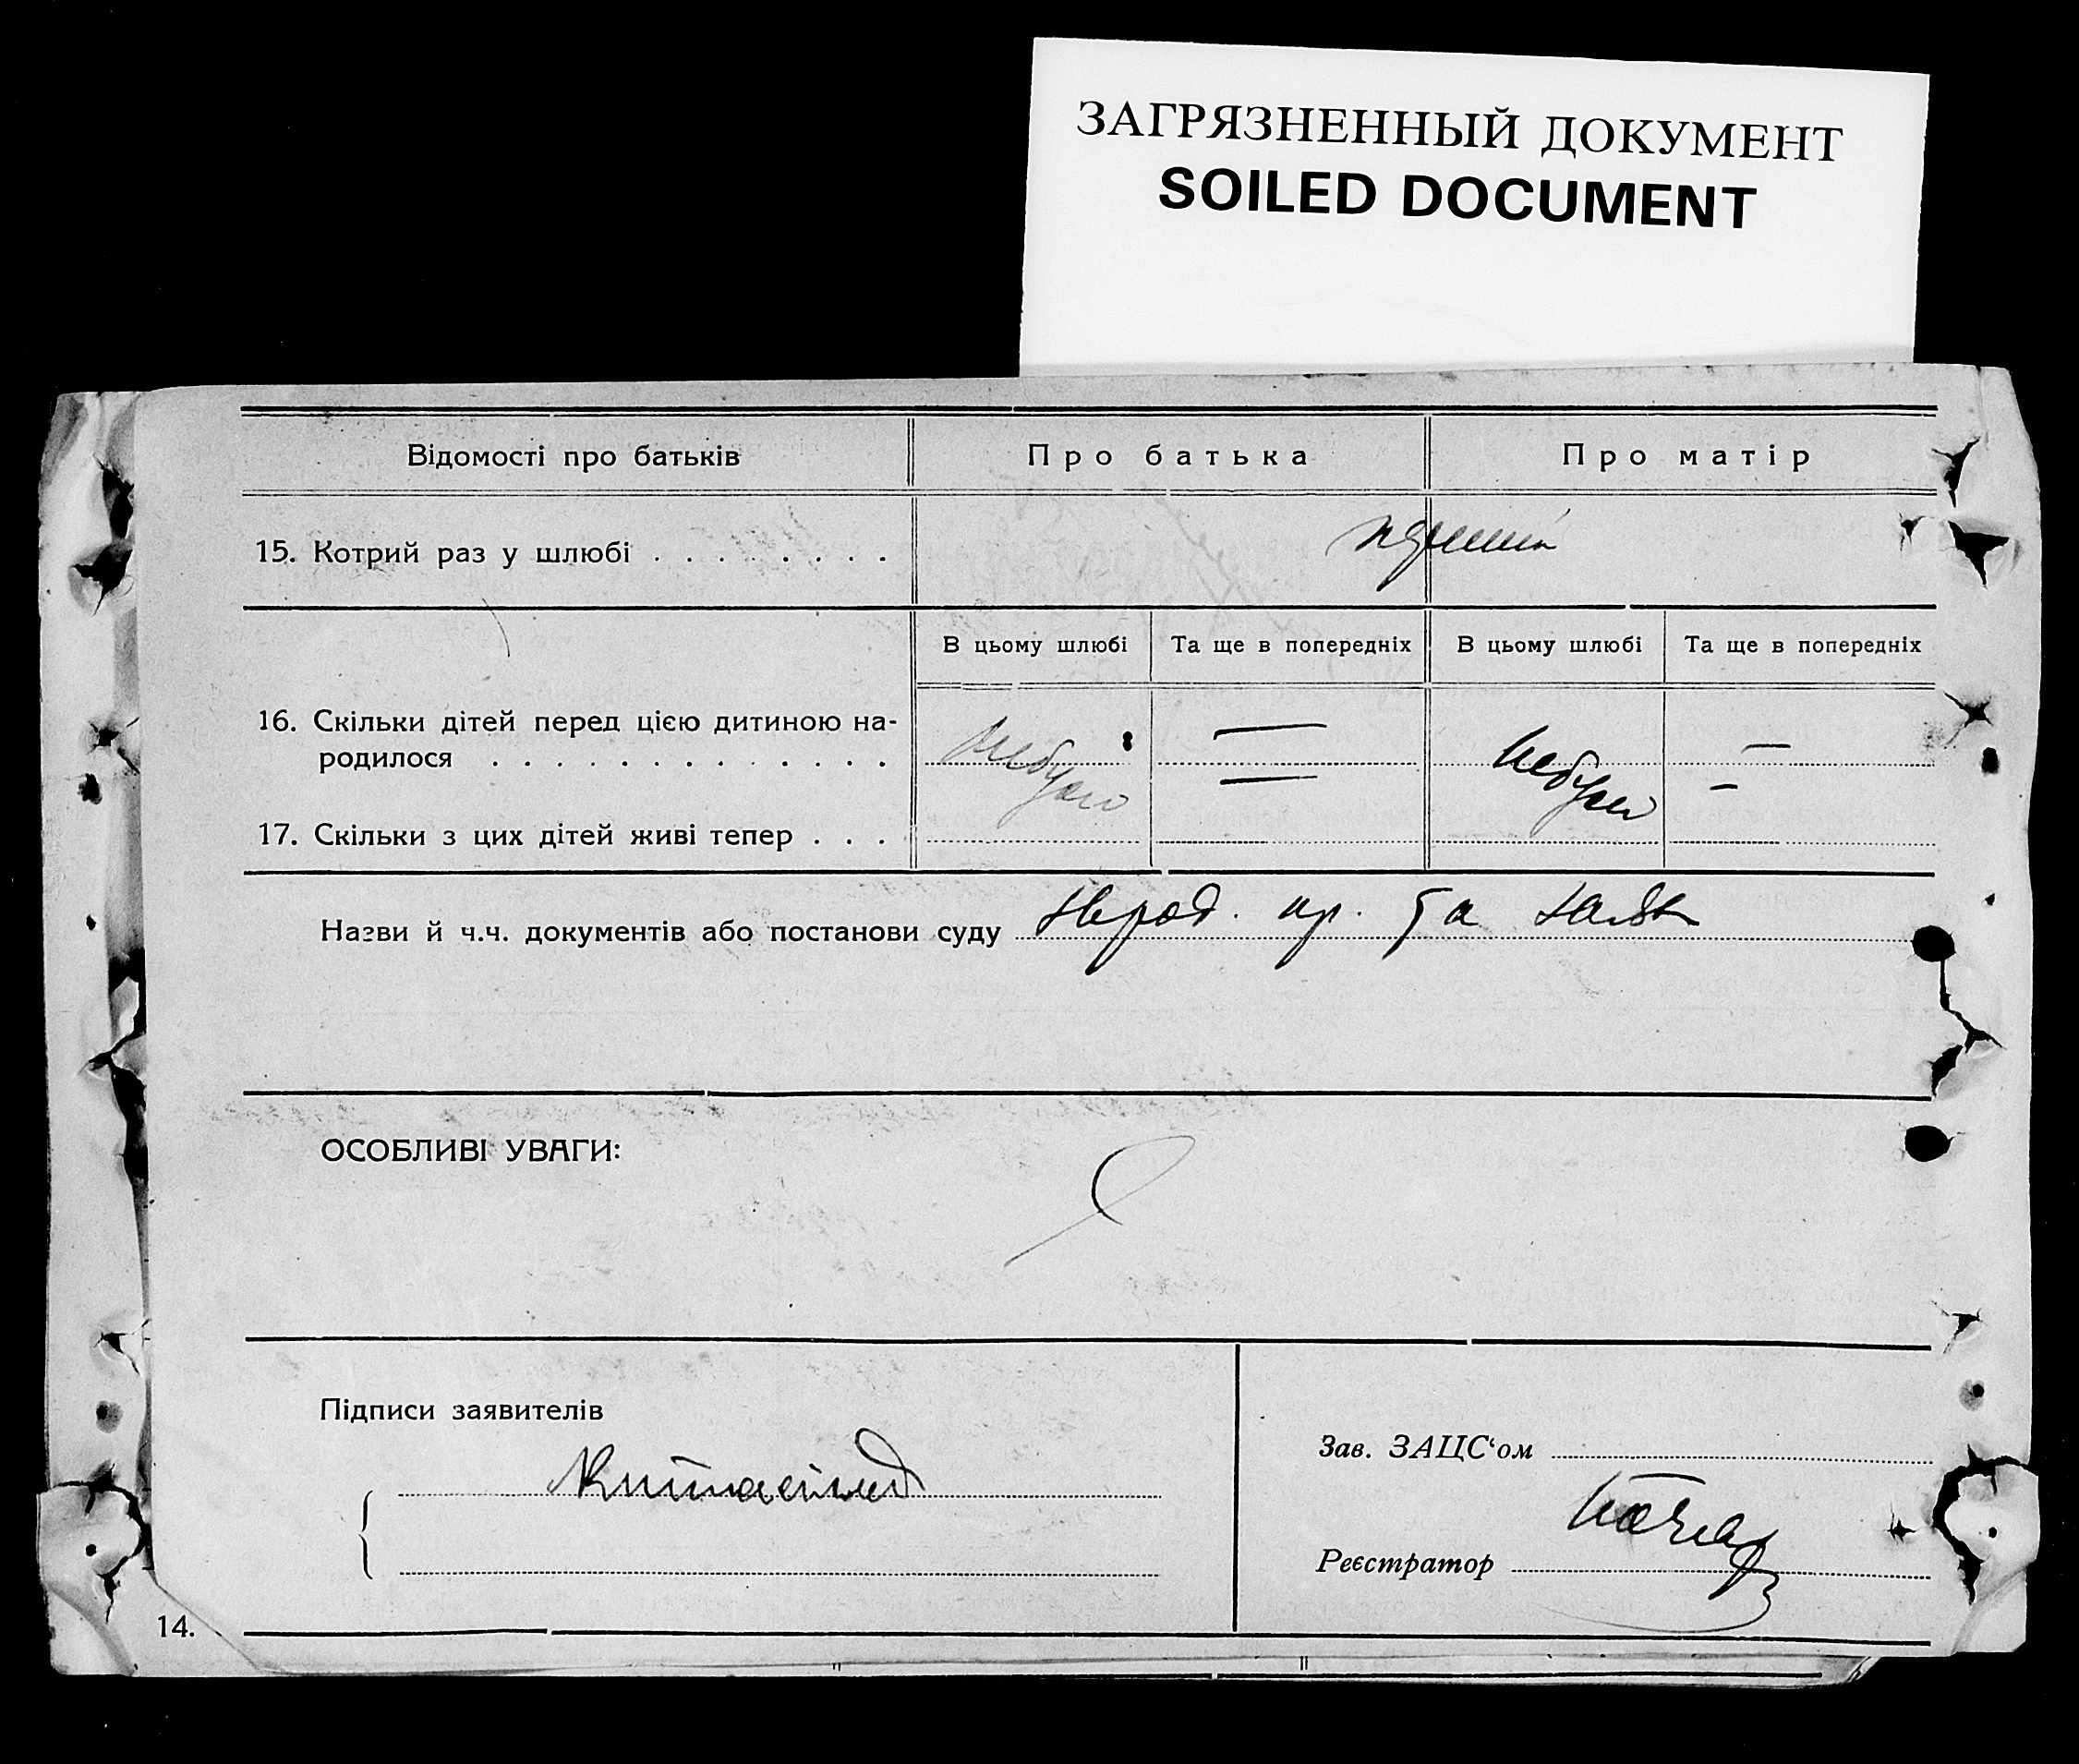 ЗАГРЯЗНЕННЫЙ ДОКУМЕНТ
SOILED DOCUMENT
Відомості про батьків Про батька Про матір
15. Котрий раз у шлюбі . . . . . . . . перший
В цьому шлюбі Та ще в попередніх В цьому шлюбі Та ще в попередніх
16. Скільки дітей перед цією дитиною на-
родилося . . . . . . . . . . . . . небуло — небуло —
17. Скільки з цих дітей живі тепер . . . — —
Назви й ч.ч. документів або постанови суду та
ОСОБЛИВІ УВАГИ:
Підписи заявителів
Зав. ЗАЦС‘ом
Реєстратор
14.